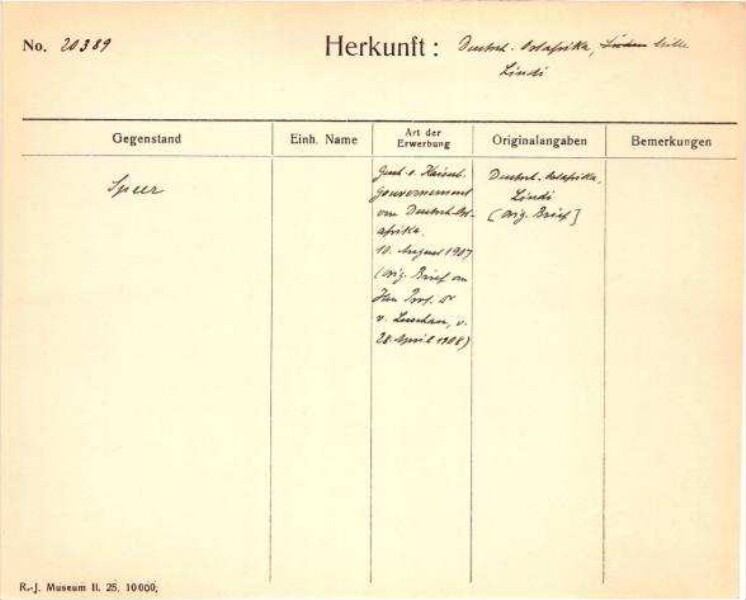 No. 20389
Herkunft: Deutsch. Ostafrika,
Lindi
Gegenstand
Einh. Name
Art der Erwerbung
Originalangaben
Bemerkungen
Speer
Gesch. v. Kaiserl.
Gouvernement
von Deutsch-Ost-
afrika.
10. August 1907
(Orig. Brief an
Herrn Prof. Dr
v. Luschan, v.
28. April 1908)
Deutsch. Ostafrika,
Lindi
(Orig. Brief]
R.-J. Museum II. 25. 10000,